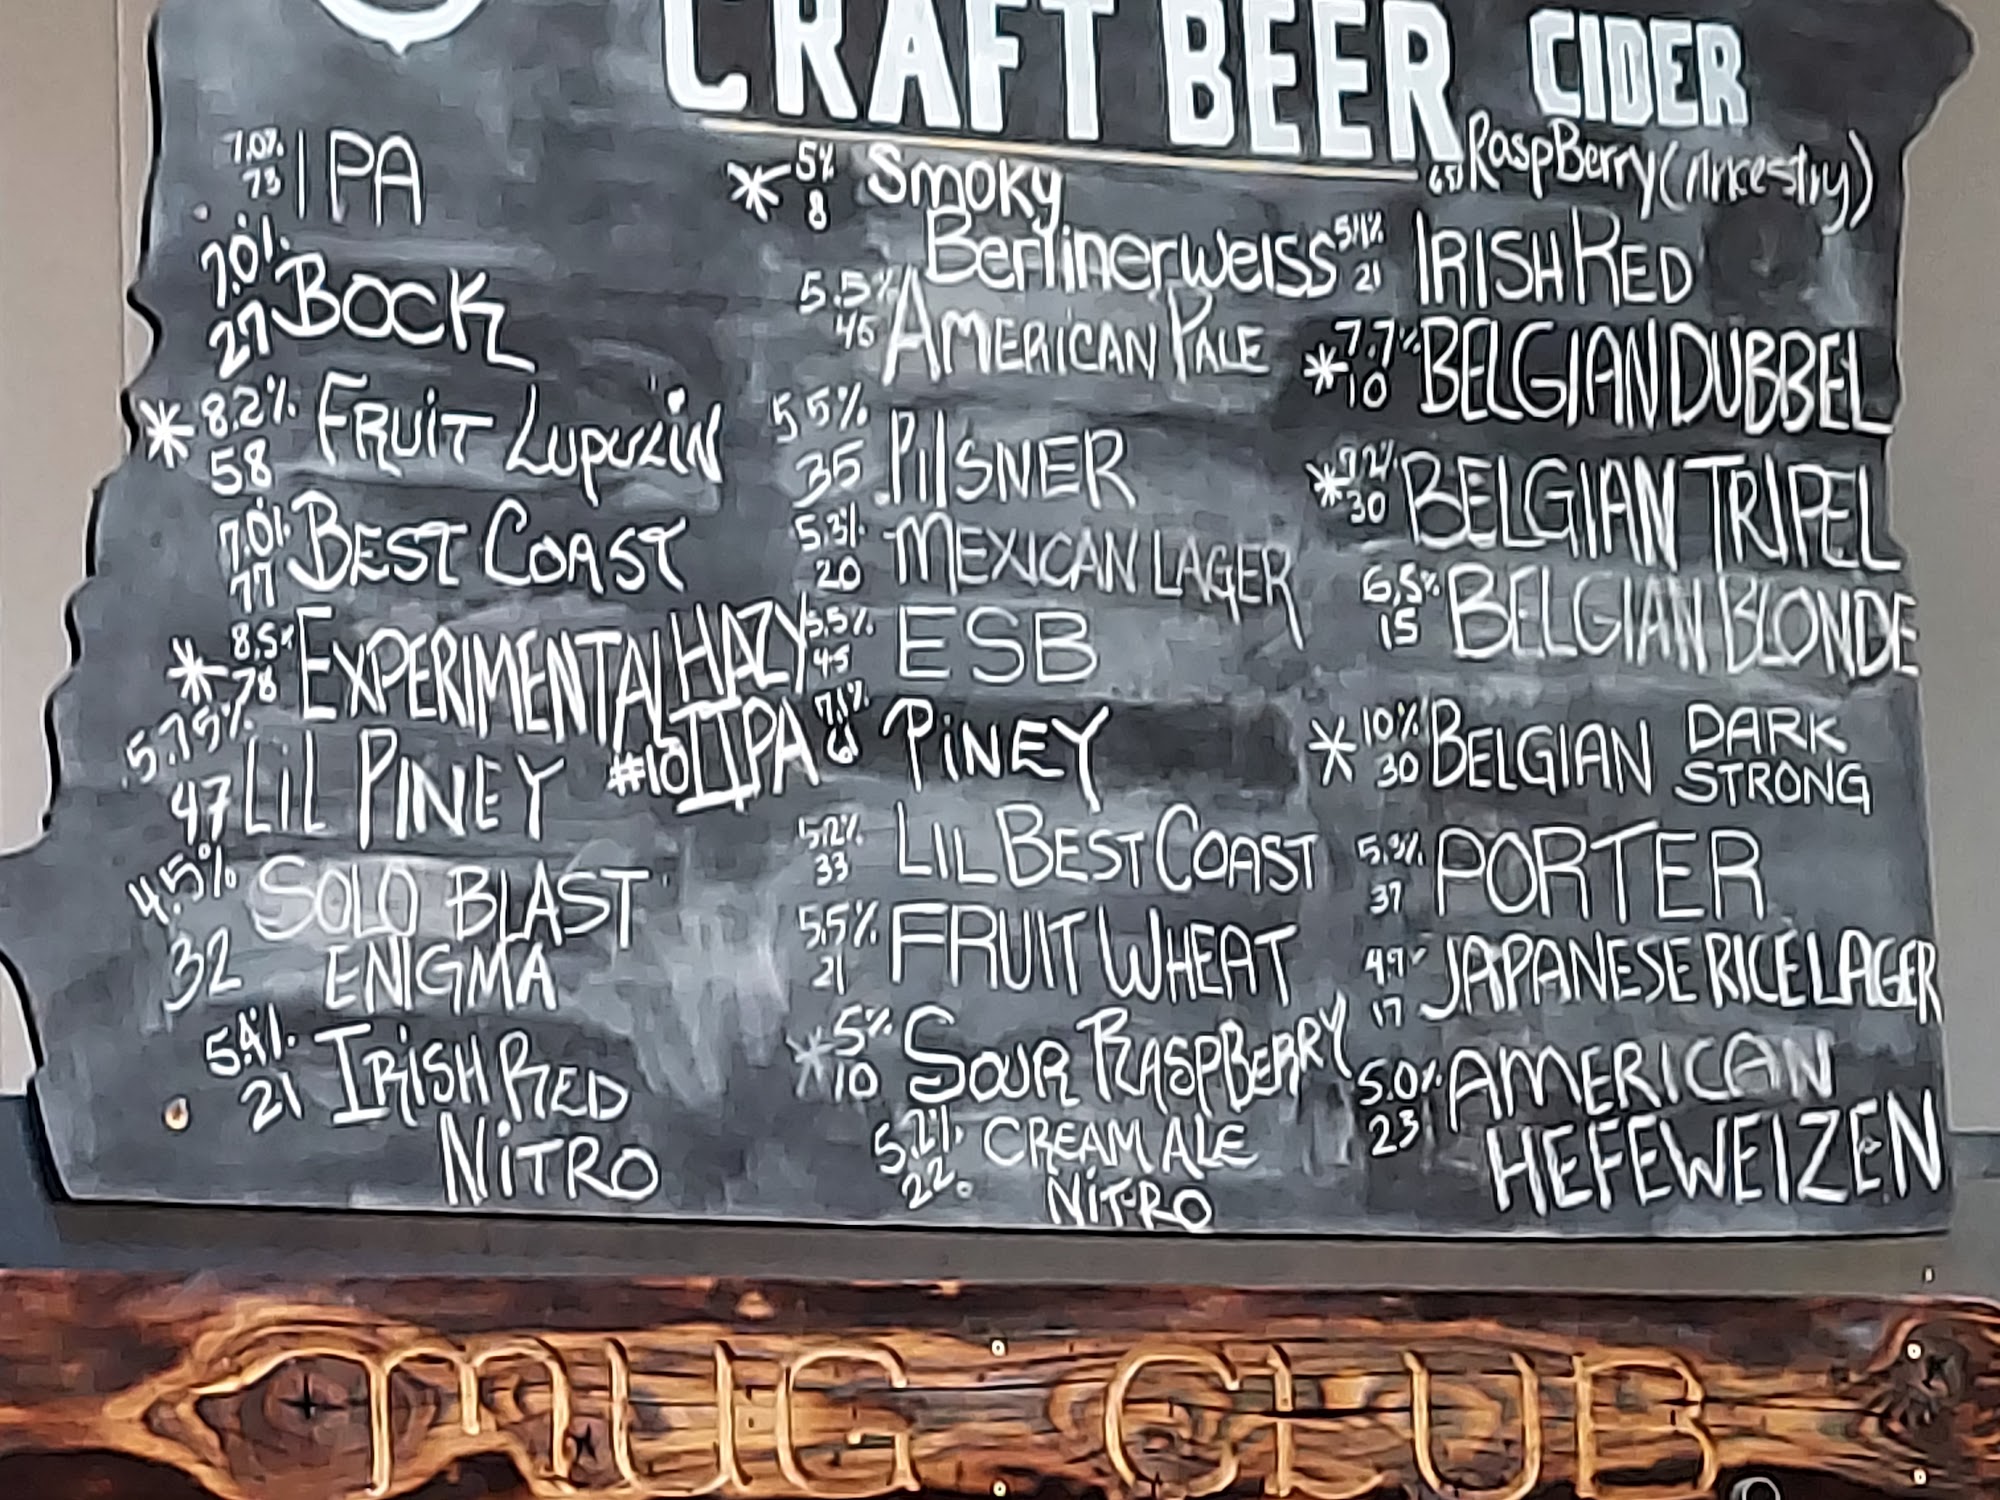 CRAFT BEER
CIDER
7.0% IPA
73
7.0% BOCK
27
* 8.2% FRUIT LUPULIN
58
7.0% BEST COAST
77
* 8.5% EXPERIMENTAL HAZY
78 #10 IIPA
5.75% LIL PINEY
47
4.5% SOLO BLAST
32 ENIGMA
5.4% IRISH RED
21 NITRO
* 5% SMOKY
8 BERLINERWEISS
5.5% AMERICAN PALE
45
5.5% PILSNER
35
5.3% MEXICAN LAGER
20
5.5% ESB
45
7.1% PINEY
61
5.2% LIL BEST COAST
33
5.5% FRUIT WHEAT
21
* 5% SOUR RASPBERRY
10
5.2% CREAM ALE
22 NITRO
RASPBERRY (Ancestry)
5.4% IRISH RED
21
* 7.7% BELGIAN DUBBEL
10
* BELGIAN TRIPEL
30
6.5% BELGIAN BLONDE
15
* 10% BELGIAN DARK
30 STRONG
PORTER
37
4.9% JAPANESE RICE LAGER
17
5.0% AMERICAN
23 HEFEWEIZEN
MUG CLUB